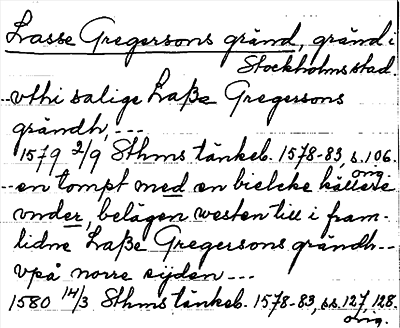 Lasse Gregersons gränd, gränd i
Stockholms stad.
vthi salige Laße Gregersons
grändh, ---
1579 2/9 Sthms tänkeb. 1578-83, s. 106.
orig.
--en tompt med en bielcke källere
vnder, belägen westen till i fram-
lidne Laße Gregersons grändh--
vpå norre sijden ---
1580 14/3 Sthms tänkeb. 1578-83, s.s. 127, 128.
orig.